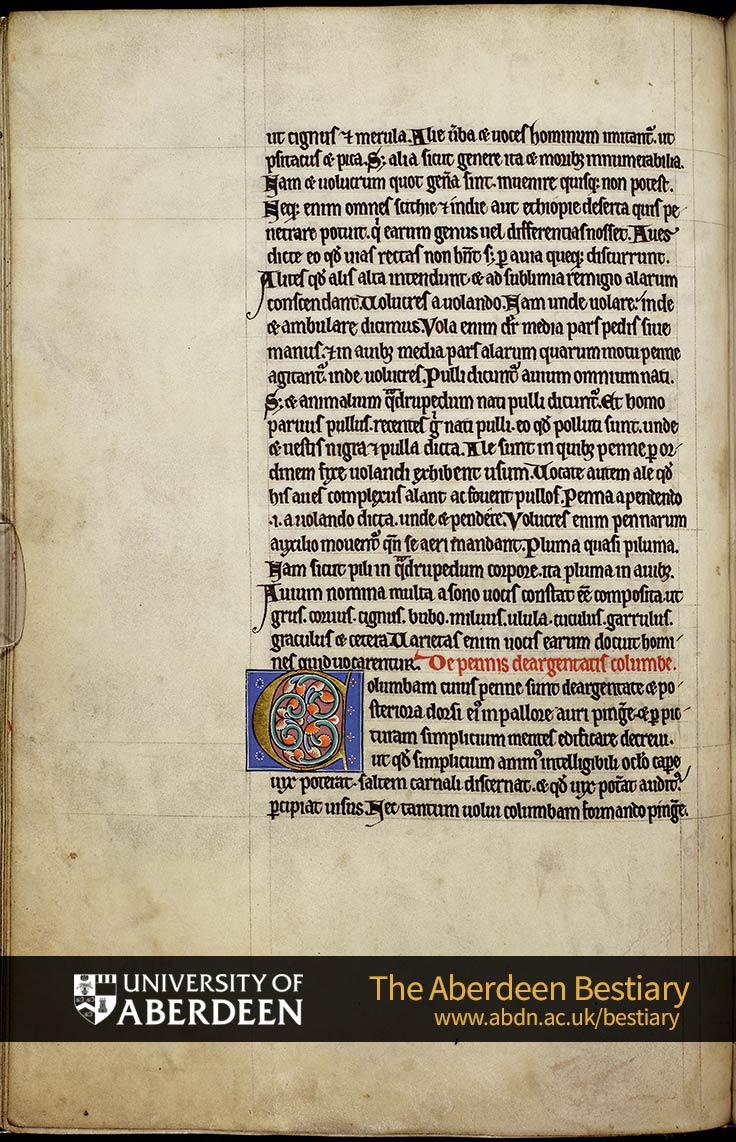 ut cignus ⁊ merula. Alie ũba & uoces hominum imitant̃. ut
psitacus & pica. S; alia sicut genere ita & morib; innumerabilia.
Nam & uolucrum quot geña sint. inuenire quisq; non potest.
Neq; enim omnes scithie ⁊ indie aut ethiopie deserta quis pe
netrare potuit. q̇ earum genus uel differentias nosset. Aues
dicte eo qđ uias rectas non hñt s; ꝑ auia queq; discurrunt.
Alites qđ alis alta intendunt & ad sublimia remigio alarum
conscendant. Uolucres a uolando. Nam unde uolare: inde
& ambulare dicimus. Vola enim dr̃ media pars pedis siue
manus. ⁊ in auib; media pars alarum quarum motu penne
agitant̃. inde uolucres. Pulli dicunt̃ auium omnium nati.
S; & animalium q̃drupedum nati pulli dicunt̃. Et homo
paruus pullus. recentes g̊ nati pulli. eo qđ polluti sunt. unde
& uestis nigra ⁊ pulla dicta. Ale sunt in quib; penne ꝑ or
dinem fixe uolandi exhibent usum. Uocate autem ale qđ
his aues complexus alant ac fouent pullos. Penna a pendendo
.i. a uolando dicta. unde & pendere. Volucres enim pennarum
auxilio mouent̃ qñ se aeri mandant. Pluma quasi piluma.
Nam sicut pili in q̃drupedum corpore. ita pluma in auib;.
Auium nomina multa a sono uocis constat eẽ composita. ut
grus. coruus. cignus. bubo. miluus. ulula. cuculus. garrulus.
graculus & cetera. Uarietas enim uocis earum docuit homi
nes quid uocarentur. De pennis deargentatis columbe.
Columbam cuius penne sunt deargentate & po
steriora dorsi ei᷒ in pallore auri ping̃e. & ꝑ pic
turam simplicium mentes edificare decreui.
ut qđ simplicium anim᷒ intelligibili oc̃lo cape
uix poterat. saltem carnali discernat. & qđ uix pot̃at audit᷒
ꝑcipiat uisus. Nec tantum uolui columbam formando ping̃e.
UNIVERSITY OF
ABERDEEN
The Aberdeen Bestiary
www.abdn.ac.uk/bestiary